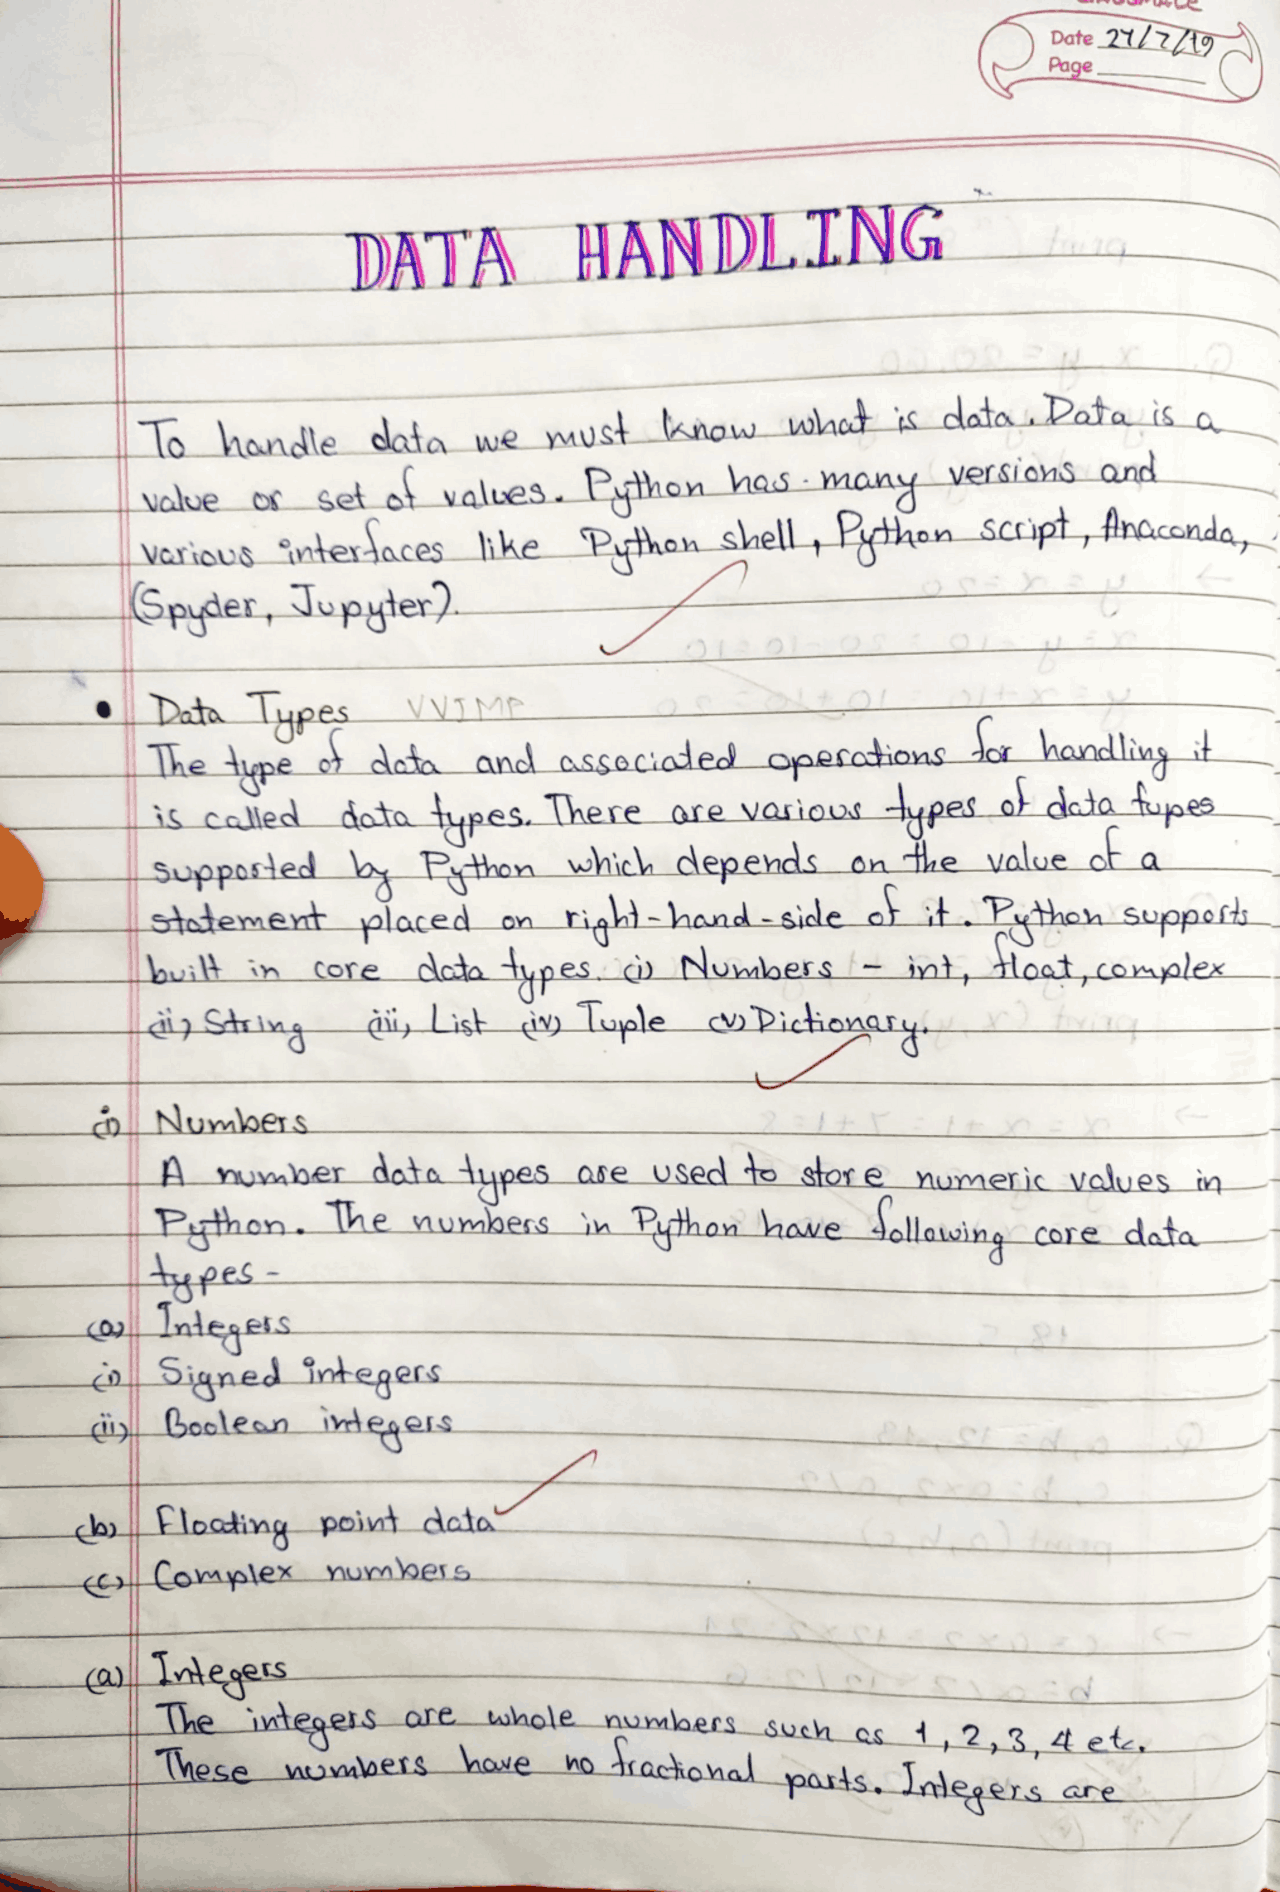 Date 27/7/19
Page
DATA HANDLING
To handle data we must know what is data. Data is a
value or set of values. Python has many versions and
various interfaces like Python shell, Python script, Anaconda,
(Spyder, Jupyter).
• Data Types VVIMP
The type of data and associated operations for handling it
is called data types. There are various types of data types
supported by Python which depends on the value of a
statement placed on right-hand-side of it. Python supports
built in core data types. (i) Numbers - int, float, complex
(ii) String (iii) List (iv) Tuple (v) Dictionary.
(i) Numbers
A number data types are used to store numeric values in
Python. The numbers in Python have following core data
types -
(a) Integers
(i) Signed integers
(ii) Boolean integers
(b) Floating point data
(c) Complex numbers
(a) Integers
The integers are whole numbers such as 1, 2, 3, 4 etc.
These numbers have no fractional parts. Integers are